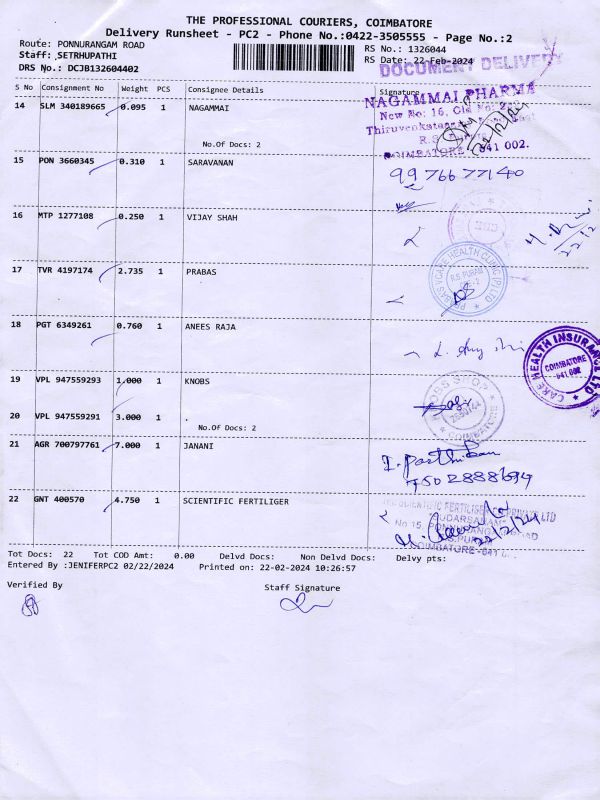 THE PROFESSIONAL COURIERS, COIMBATORE
Delivery Runsheet - PC2 - Phone No.:0422-3505555 - Page No.:2
Route: PONNURANGAM ROAD RS No.: 1326044
Staff: SETRHUPATHI RS Date: 22-Feb-2024
DRS No.: DCJB132604402 DOCUMENT DELIVERY
S No Consignment No Weight PCS Consignee Details Signature
14 SLM 340189665 0.095 1 NAGAMMAI
NAGAMMAI PHARMA
New No: 16, Old No: 2
Thiruvenkata
No.Of Docs: 2
COIMBATORE 641 002.
15 PON 3660345 0.310 1 SARAVANAN
9976677140
16 MTP 1277108 0.250 1 VIJAY SHAH
17 TVR 4197174 2.735 1 PRABAS
PRABAS VCARE HEALTH CLINIC (P) LTD
R.S. PURAM
18 PGT 6349261 0.760 1 ANEES RAJA
CARE HEALTH INSURANCE LTD
COIMBATORE
641 002
19 VPL 947559293 1.000 1 KNOBS
20 VPL 947559291 3.000 1
No.Of Docs: 2
COIMBATORE
21 AGR 700797761 7.000 1 JANANI
I. Parthiban
7502888694
22 GNT 400570 4.750 1 SCIENTIFIC FERTILIGER
SCIENTIFIC FERTILISER
22/2/24
COIMBATORE - 641
Tot Docs: 22 Tot COD Amt: 0.00 Delvd Docs: Non Delvd Docs: Delvy pts:
Entered By :JENIFERPC2 02/22/2024 Printed on: 22-02-2024 10:26:57
Verified By Staff Signature